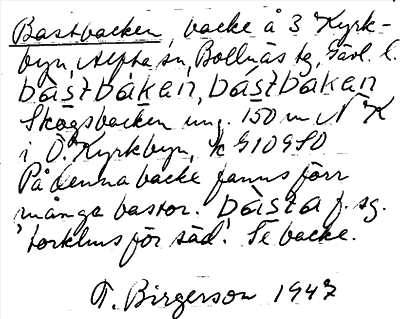 Bastbacken, backe å 3 Kyrk-
byn, Alfta sn, Bollnäs tg, Gävl. l.
bástbàkan, bástbakan
Skogsbacken ung. 150 m N K
i Ö. Kyrkbyn, k G109SO
På denna backe fanns förr
många bastor. bàsta f. sg.
'torkhus för säd'. Se backe.
T. Birgerson 1947